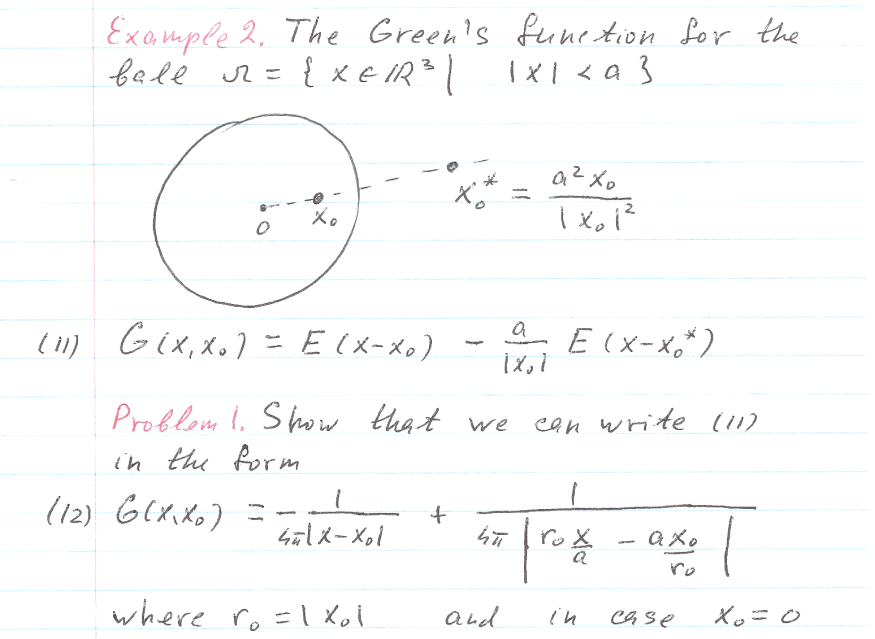 Example 2. The Green's function for the
ball Ω = { x ∈ ℝ³ | |x| < a }
0
x₀
x₀* = a² x₀ / |x₀|²
(11) G(x, x₀) = E(x-x₀) - a/|x₀| E(x-x₀*)
Problem 1. Show that we can write (11)
in the form
(12) G(x, x₀) = - 1/(4π|x-x₀|) + 1/(4π |r₀ x/a - a x₀/r₀|)
where r₀ = |x₀| and in case x₀ = 0